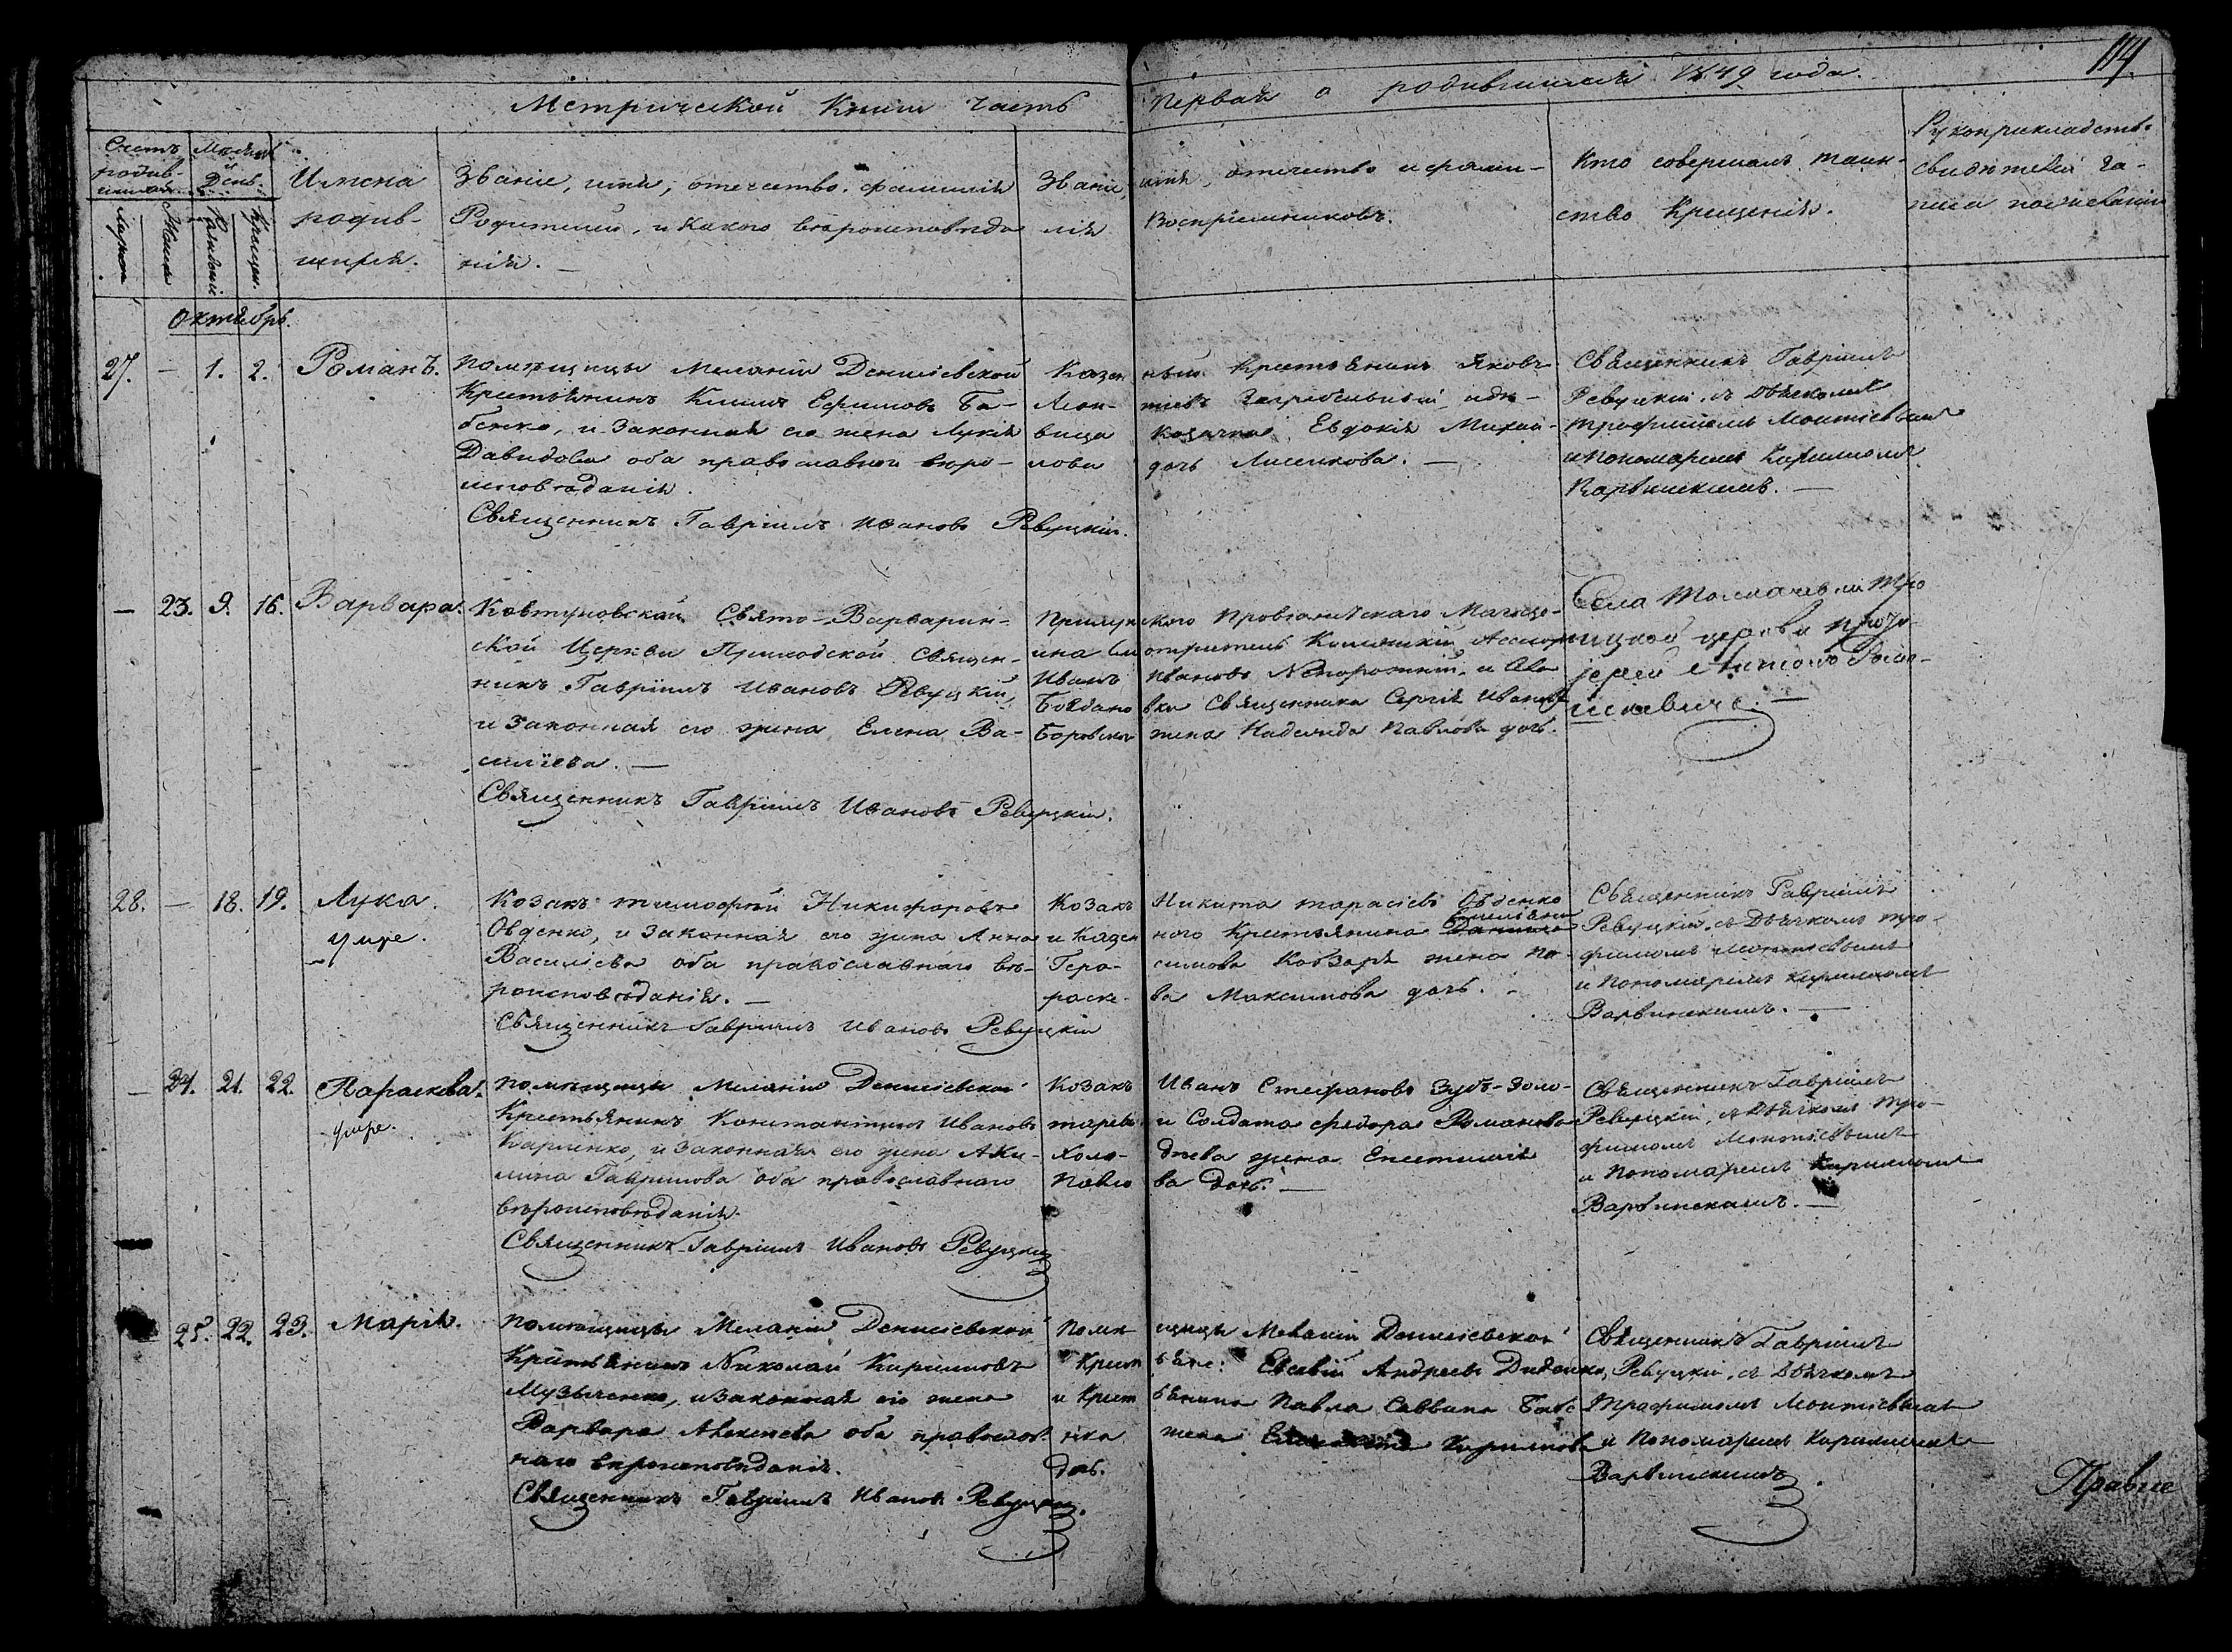 114
Метрической Книги часть первая о родившихся 1849 года.
Счетъ родив-
шихся
Мѣсяцъ
и
День.
Мужска
Женска
Рожденія
Крещен.
Имена
родив-
шихся.
Званіе, имя, отечество, фамилія
Родителей, и какого вѣроисповѣда
нія. —
Званіе, имя, отечество и фами-
лія Воспріемниковъ.
Кто совершалъ таин-
ство Крещенія.
Рукоприкладство
свидѣтелей за-
писи по желанію
Октябрь.
27. — 1. 2.
Романъ.
Помѣщицы Меланіи Денисіевской
Крестьянинъ Климъ Ефимовъ Ба-
бенко, и Законная его жена Лукія
Давидова оба православнаго вѣро-
исповѣданія.
Священникъ Гавріилъ Ивановъ Ревуцкій.
Казен ный Крестьянинъ Яковъ
Леон- тіевъ
вица Козачка Евдокія Михай-
лова дочь Лисенкова. —
Священникъ Гавріилъ
Ревуцкій, съ Дьячкомъ
Трофимомъ
и Пономаремъ Кирилломъ
Варвинскимъ. —
— 23. 9. 16.
Варвара.
Ковтуновской Свято-Варварин-
ской Церкви Приходской Священ-
никъ Гавріилъ Ивановъ Ревуцкій,
и Законная его жена Елена Ва-
силіева. —
Священникъ Гавріилъ Ивановъ Ревуцкій.
Прилук скаго Провіантскаго Магазе-
ина См отритель
Иванъ Ивановъ
Богдано вки Священника Сергія Иванова
Боровскаго жена Надежда Павлова дочь.
Села Тро
ицкой церкви Прото-
іерей
28. — 18. 19.
Лука.
умре.
Козакъ Тимофей Никифоровъ
Овденко, и Законная его жена Анна
Василіева оба православнаго вѣ-
роисповѣданія. —
Священникъ Гавріилъ Ивановъ Ревуцкій
Козакъ Никита Тарасіевъ Овденко
и Казен ного Крестьянина
Гера- симова Кобзаря жена По-
раске- ва Максимова дочь. —
Священникъ Гавріилъ
Ревуцкій, съ Дьячкомъ Тро-
фимомъ
и Пономаремъ Кирилломъ
Варвинскимъ. —
— 24. 21. 22.
Параскева.
умре.
Помѣщицы Меланіи Денисіевской
Крестьянинъ Константинъ Ивановъ
Карпенко, и Законная его жена Аки-
лина Гаврилова оба православнаго
вѣроисповѣданія.
Священникъ Гавріилъ Ивановъ Ревуцкій
Козакъ Иванъ Стефановъ Зубъ-Золо-
таревъ и Солдата Федора Романова
Холо- днева жена
Павло ва дочь. —
Священникъ Гавріилъ
Ревуцкій, съ Дьячкомъ Тро-
фимомъ
и Пономаремъ Кирилломъ
Варвинскимъ. —
25. 22. 23.
Марія.
Помѣщицы Меланіи Денисіевской
Крестьянинъ Николай Кирилловъ
Музыченко, и Законная его жена
Варвара Алексѣева оба православ-
наго вѣроисповѣданія.
Священникъ Гавріилъ Ивановъ Ревуцкій.
Помѣ щицы Меланіи Денисіевской
Крест ьяне: Евсевій Андреевъ Диденко,
и Крест ьянина Павла Саввина Бабе
нка жена Кирилова
дочь.
Священникъ Гавріилъ
Ревуцкій, съ Дьячкомъ
Трофимомъ
и Пономаремъ Кирилломъ
Варвинскимъ.